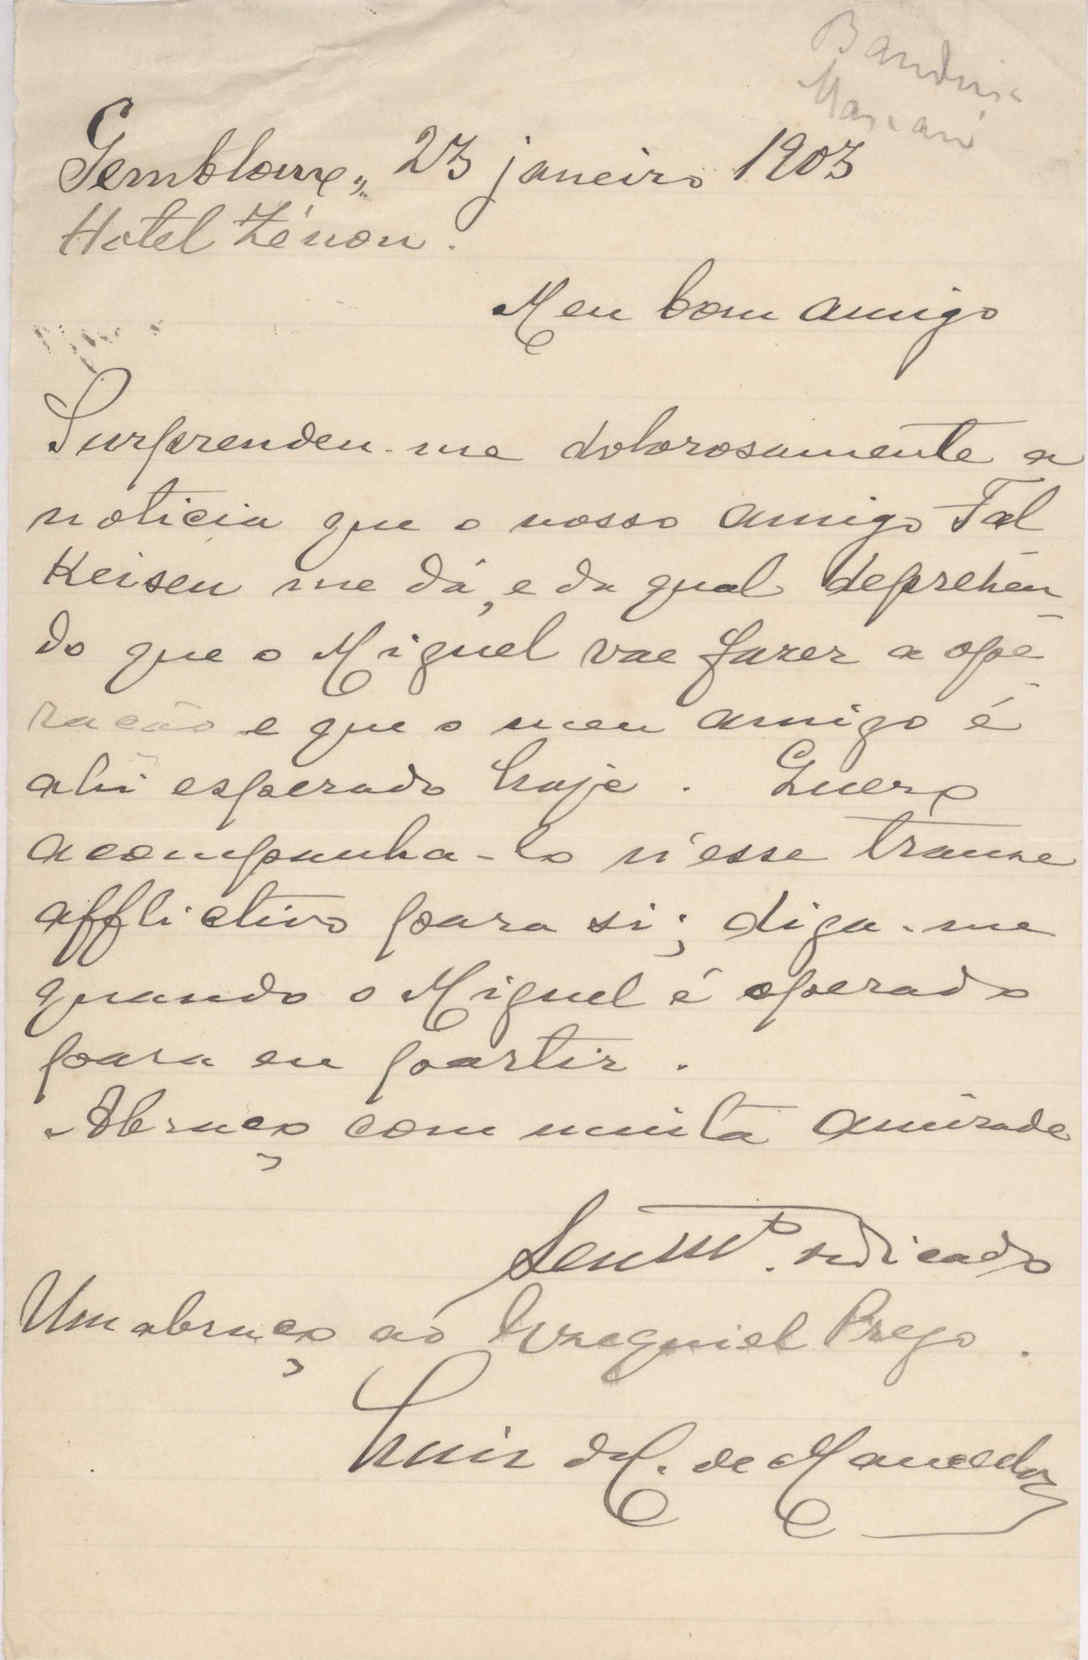 Gembloux, 23 janeiro 1903
Hotel Zénon.
Meu bom amigo
Surprendeu-me dolorosamente a
noticia que o nosso amigo Fal
Keisen me dá, e da qual deprehen
do que o Miguel vae fazer a ope
ração e que o meu amigo é
ahi esperado hoje. Quero
acompanha-lo n'esse transe
afflictivo para si; diga-me
quando o Miguel é operado
para eu partir.
Abraço com muita amizade
Seu mto. dedicado
Um abraço ao Ezequiel Prego.
Luiz M. de Macedo